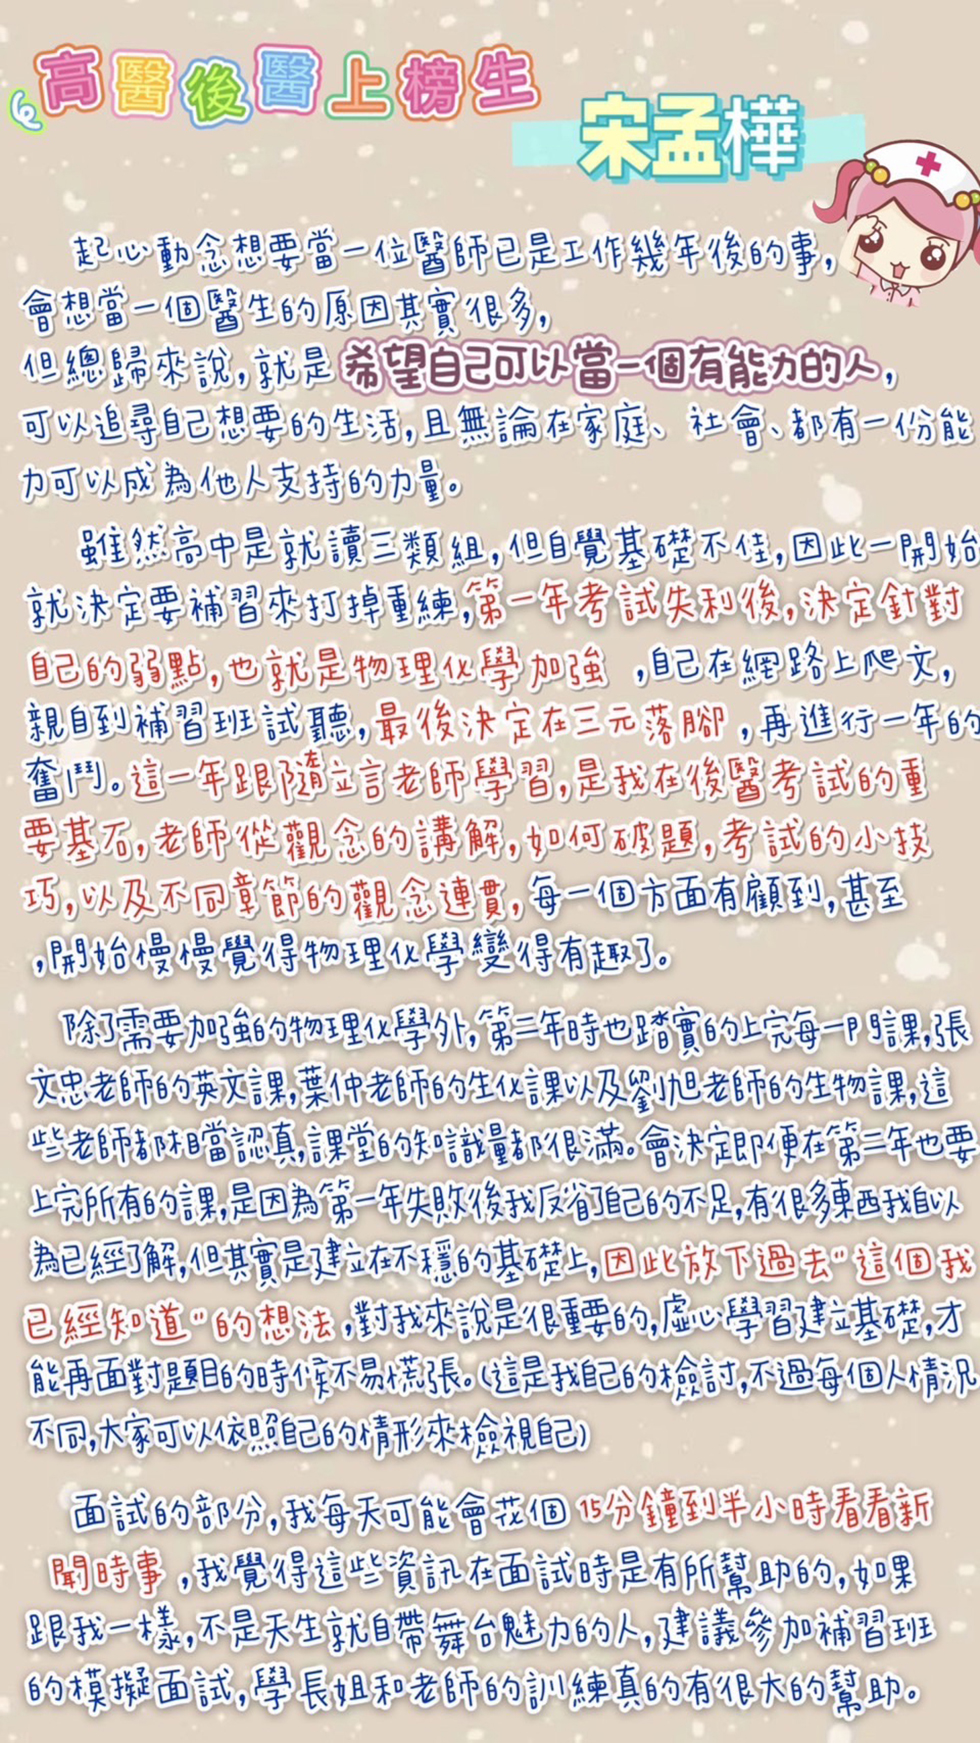 高醫後醫上榜生
宋孟樺
起心動念想要當一位醫師已是工作幾年後的事,
會想當一個醫生的原因其實很多,
但總歸來說,就是希望自己可以當一個有能力的人,
可以追尋自己想要的生活,且無論在家庭、社會、都有一份能
力可以成為他人支持的力量。
雖然高中是就讀三類組,但自覺基礎不佳,因此一開始
就決定要補習來打掉重練,第一年考試失利後,決定針對
自己的弱點,也就是物理化學加強 ,自己在網路上爬文,
親自到補習班試聽,最後決定在三元落腳 ,再進行一年的
奮鬥。這一年跟隨立言老師學習,是我在後醫考試的重
要基石,老師從觀念的講解,如何破題,考試的小技
巧,以及不同章節的觀念連貫,每一個方面有顧到,甚至
,開始慢慢覺得物理化學變得有趣了。
除了需要加強的物理化學外,第二年時也踏實的上完每一門課,張
文忠老師的英文課,葉仲老師的生化課以及劉旭老師的生物課,這
些老師都相當認真,課堂的知識量都很滿。會決定即便在第二年也要
上完所有的課,是因為第一年失敗後我反省了自己的不足,有很多東西我自以
為已經了解,但其實是建立在不穩的基礎上,因此放下過去"這個我
已經知道"的想法,對我來說是很重要的,虛心學習建立基礎,才
能再面對題目的時候不易慌張。(這是我自己的檢討,不過每個人情況
不同,大家可以依照自己的情形來檢視自己)
面試的部分,我每天可能會花個15分鐘到半小時看看新
聞時事 ,我覺得這些資訊在面試時是有所幫助的,如果
跟我一樣,不是天生就自帶舞台魅力的人,建議參加補習班
的模擬面試,學長姐和老師的訓練真的有很大的幫助。